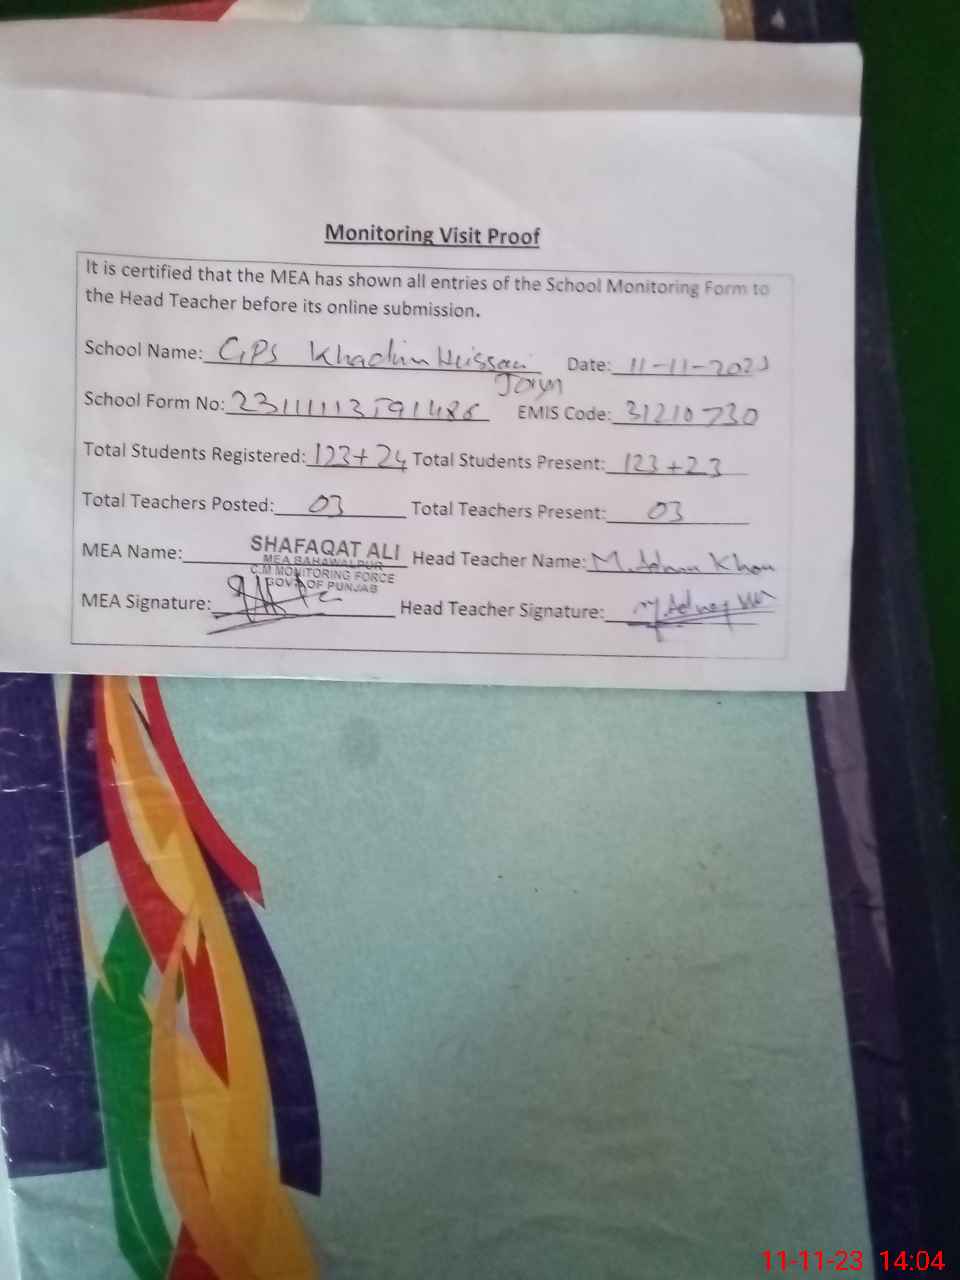 Monitoring Visit Proof
It is certified that the MEA has shown all entries of the School Monitoring Form to
the Head Teacher before its online submission.
School Name: GPS Khadim Hussain Date: 11-11-2023
School Form No: EMIS Code: 31210730
Total Students Registered: 123+24 Total Students Present: 123+23
Total Teachers Posted: 03 Total Teachers Present: 03
MEA Name: SHAFAQAT ALI Head Teacher Name: M. Adnan Khan
MEA BAHAWALPUR
C.M MONITORING FORCE
GOVT. OF PUNJAB
MEA Signature: Head Teacher Signature:
11-11-23 14:04